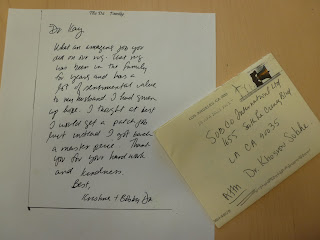 The Da Family
Dr Kay,
What an amazing job you
did on our rug. That rug
has been in the family
for years and has a
lot of sentimental value
to my husband. I had given
up hope. I thought at best
I would get a patch job
but instead I got back
a master piece. Thank
you for your hard work
and kindness.
Best,
Kirstine + Bobby Da
LOS ANGELES CA 900
International
LA CA 90035
Attn Dr. Khosrow Sobhe